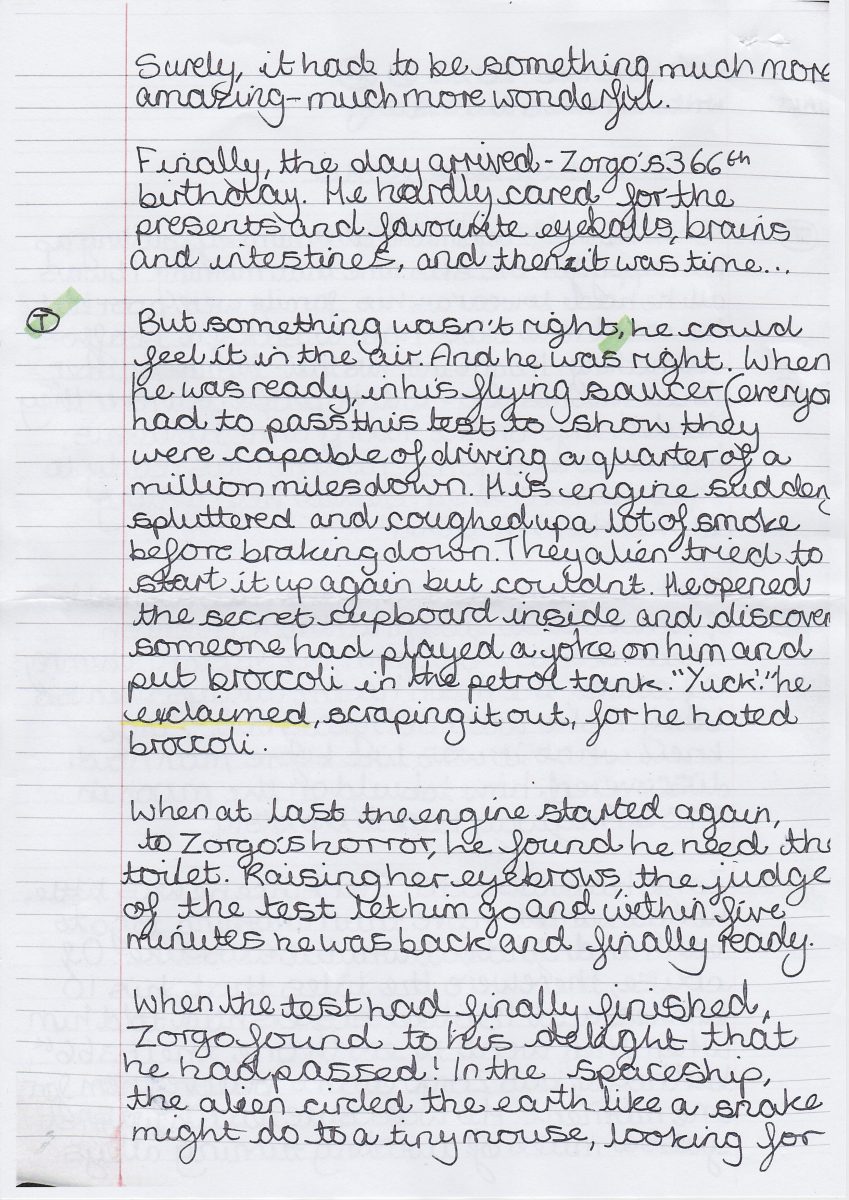 Surely, it had to be something much more
amazing - much more wonderful.
Finally, the day arrived - Zorgo's 366th
birthday. He hardly cared for the
presents and favourite eyeballs, brains
and intestines, and then it was time...
T
But something wasn't right, he could
feel it in the air. And he was right. When
he was ready, in his flying saucer (everyon
had to pass this test to show they
were capable of driving a quarter of a
million miles down. His engine sudden
spluttered and coughed up a lot of smoke
before braking down. They alien tried to
start it up again but couldn't. He opened
the secret cupboard inside and discover
someone had played a joke on him and
put broccoli in the petrol tank. "Yuck!" he
exclaimed, scraping it out, for he hated
broccoli.
When at last the engine started again,
to Zorgo's horror, he found he need the
toilet. Raising her eyebrows, the judge
of the test let him go and within five
minutes he was back and finally ready.
When the test had finally finished,
Zorgo found to his delight that
he had passed! In the spaceship,
the alien circled the earth like a snake
might do to a tiny mouse, looking for